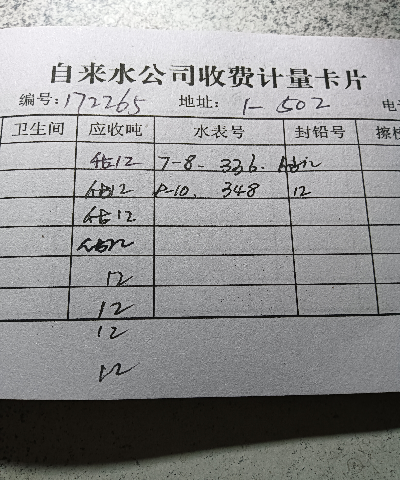 自来水公司收费计量卡片
编号:172265 地址: 1-502 电
卫生间 应收吨 水表号 封铅号 擦
12 7-8. 336.
12 -10. 348 12
12
12
12
12
12
12